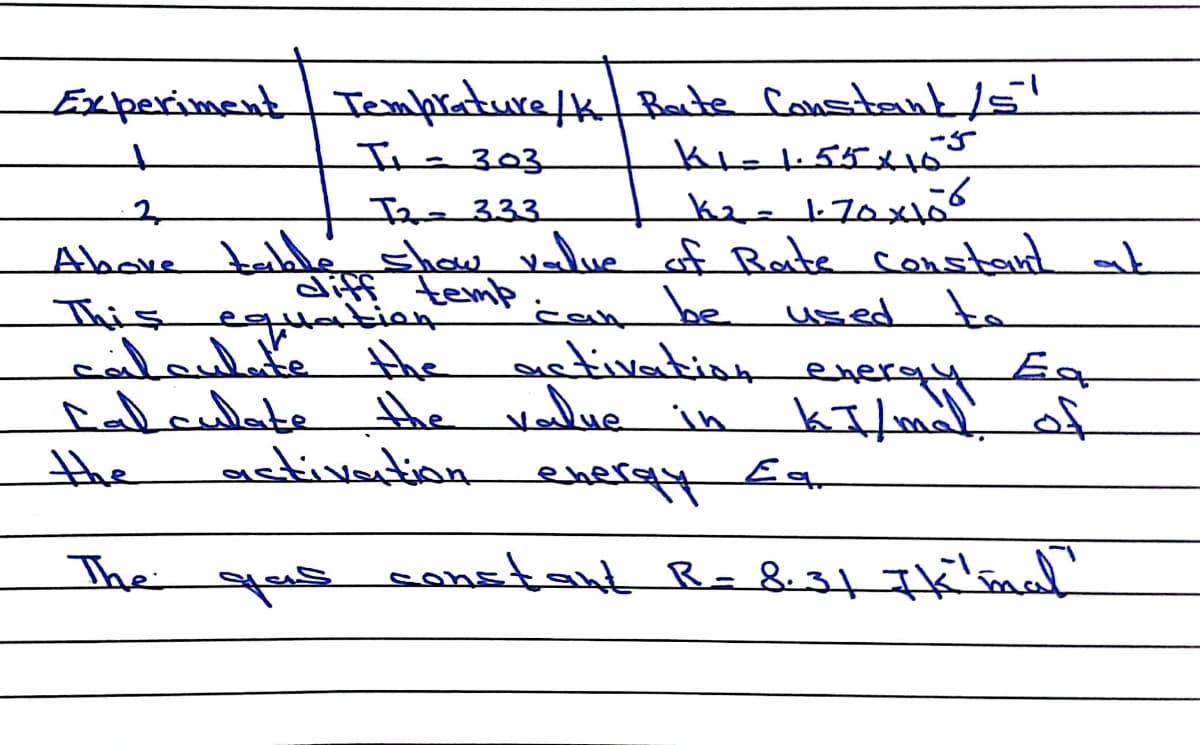 Experiment | Temprature/k | Rate Constant /s⁻¹
1 | T₁ = 303 | k₁ = 1.55 x 10⁻⁵
2 | T₂ = 333 | k₂ = 1.70 x 10⁻⁶
Above table show value of Rate constant at
diff temp.
This equation can be used to
calculate the activation energy Ea
Calculate the value in kJ/mol. of
the activation energy Ea.
The gas constant R = 8.31 Jk⁻¹mol⁻¹